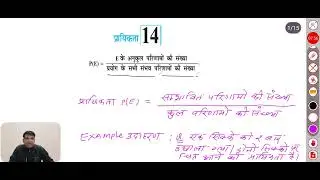 प्रायिकता 14
1/15
P(E) = E के अनुकूल परिणामों की संख्या
प्रयोग के सभी संभव परिणामों की संख्या
प्रायिकता P(E) = सम्भावित परिणामों की संख्या
कुल परिणामों की संख्या
Example उदाहरण: एक सिक्के को
उछाला गया। दोनों सिक्को पर
चित आने की प्रायिकता है।